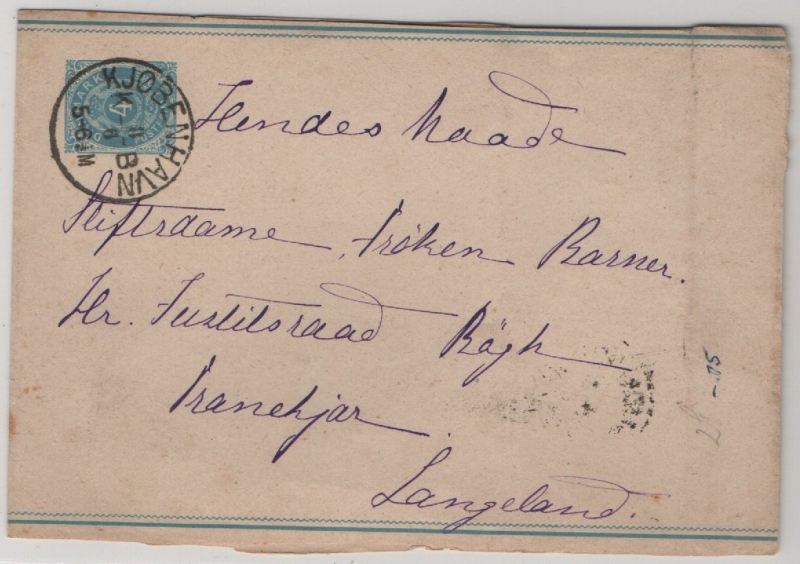 KJØBENHAVN
5-6 EM
4
Hendes Naade
Stiftsdame Frøken Barner.
Hr. Justitsraad Bøgh
Tranekjær.
Langeland.
-.05